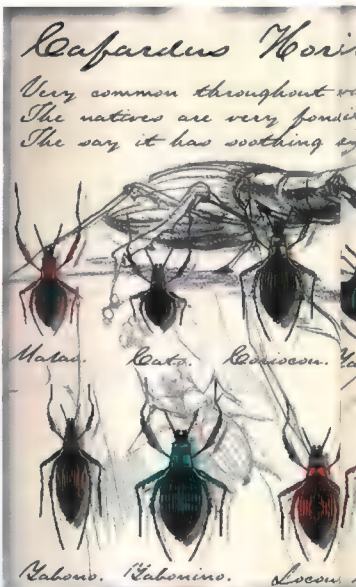 Cafardus Hori
Very common throughout
The natives are very
The say it has soothing
Matao. Cato. Coriocou.
Zabono. Zabonino. Locou